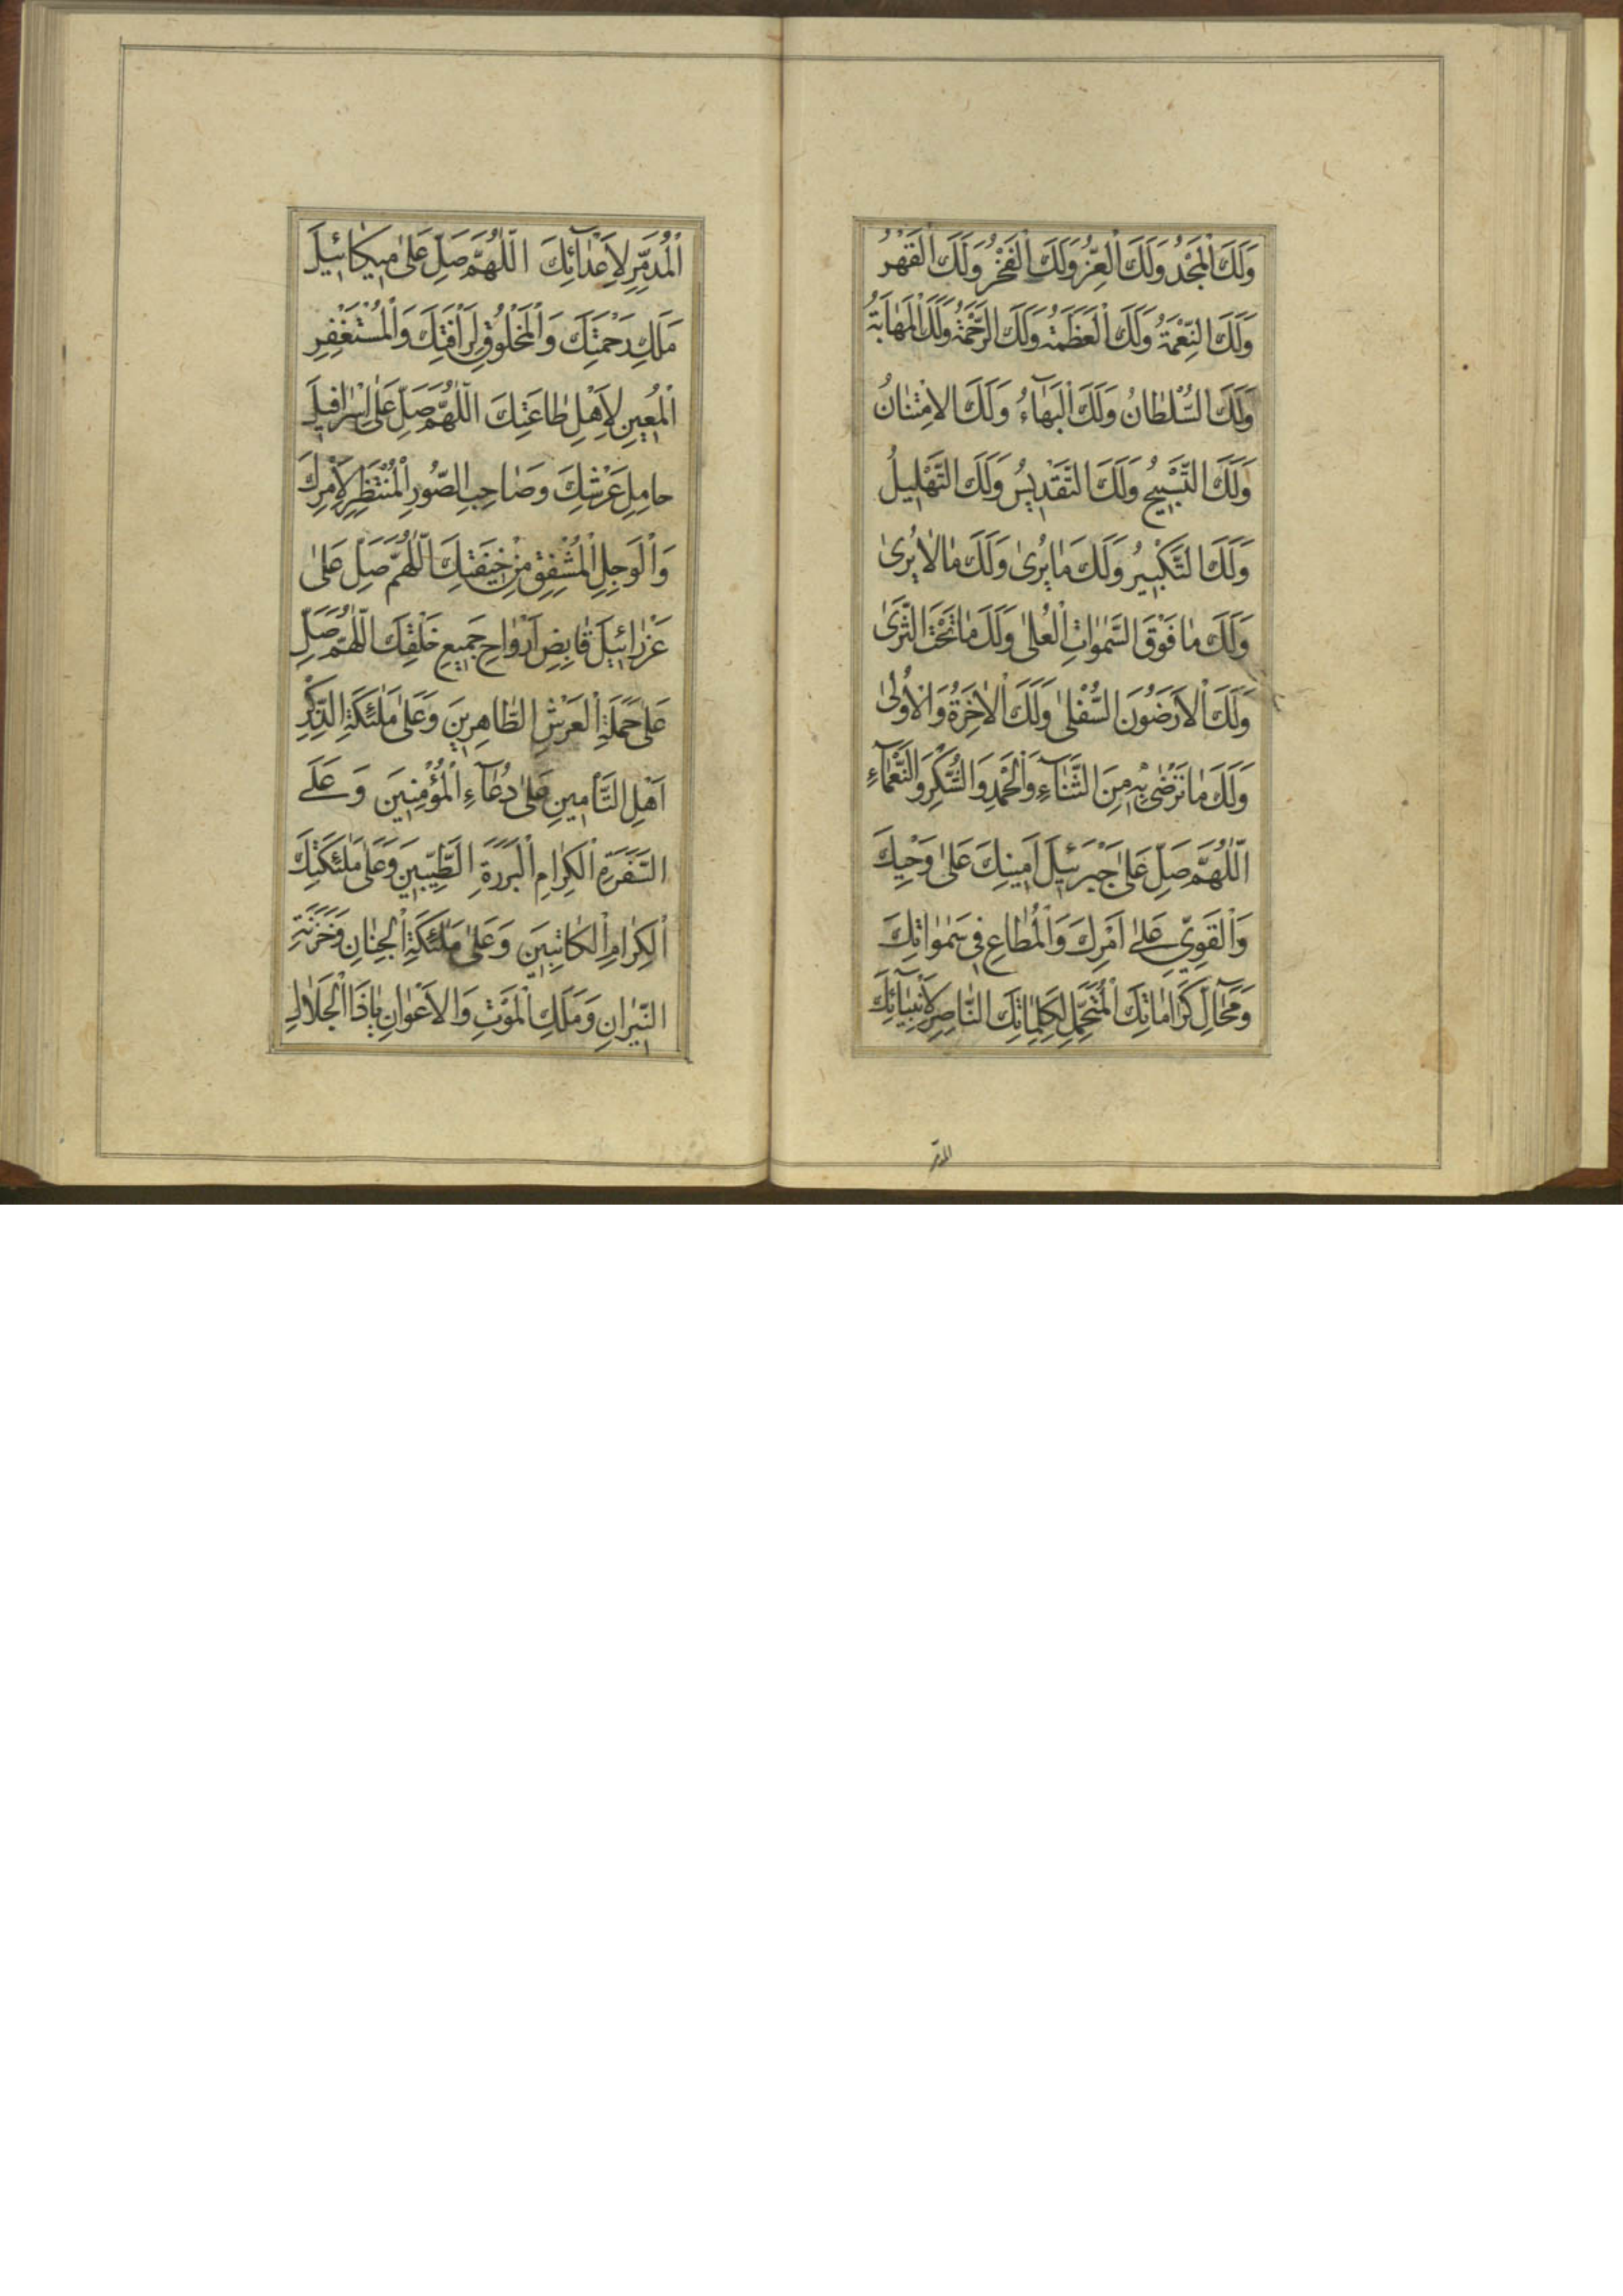 وَلَكَ الْمَجْدُ وَلَكَ الْعِزُّ وَلَكَ الْفَخْرُ وَلَكَ الْقَهْرُ
وَلَكَ النِّعْمَةُ وَلَكَ الْعَظَمَةُ وَلَكَ الرَّحْمَةُ وَلَكَ الْمَهَابَةُ
وَلَكَ السُّلْطَانُ وَلَكَ الْبَهَآءُ وَلَكَ الامْتِنَانُ
وَلَكَ التَّسْبِيحُ وَلَكَ التَّقْدِيسُ وَلَكَ التَّهْلِيلُ
وَلَكَ التَّكْبِيرُ وَلَكَ مَا يُرىٰ وَلَكَ مَا لَا يُرىٰ
وَلَكَ مَا فَوْقَ السَّمٰوَاتِ الْعُلىٰ وَلَكَ مَا تَحْتَ الثَّرىٰ
وَلَكَ الْاَرَضُونَ السُّفْلىٰ وَلَكَ الْاٰخِرَةُ وَالْاُولىٰ
وَلَكَ مَا تَرْضٰى بِهِ مِنَ الثَّنَآءِ وَالْحَمْدِ وَالشُّكْرِ وَالنَّعْمَآءِ
اَللّٰهُمَّ صَلِّ عَلىٰ جَبْرَئِيلَ اَمِينِكَ عَلىٰ وَحْيِكَ
وَالْقَوِيِّ عَلىٰ اَمْرِكَ وَالْمُطَاعِ فِى سَمٰوَاتِكَ
وَمَحَآلِّ كَرَامَاتِكَ الْمُتَحَمِّلِ لِكَلِمَاتِكَ النَّاصِرِ لِاَنْبِيَآئِكَ
المدمر
الْمُدَمِّرِ لِاَعْدَآئِكَ اَللّٰهُمَّ صَلِّ عَلىٰ مِيكَائِيلَ
مَلَكِ رَحْمَتِكَ وَالْمَخْلُوقِ لِرَاْفَتِكَ وَالْمُسْتَغْفِرِ
الْمُعِينِ لِاَهْلِ طَاعَتِكَ اَللّٰهُمَّ صَلِّ عَلىٰ اِسْرَافِيلَ
حَامِلِ عَرْشِكَ وَصَاحِبِ الصُّورِ الْمُنْتَظِرِ لِاَمْرِكَ
وَالْوَجِلِ الْمُشْفِقِ مِنْ خِيفَتِكَ اَللّٰهُمَّ صَلِّ عَلىٰ
عَزْرَائِيلَ قَابِضِ اَرْوَاحِ جَمِيعِ خَلْقِكَ اَللّٰهُمَّ صَلِّ
عَلىٰ حَمَلَةِ الْعَرْشِ الطَّاهِرِينَ وَعَلىٰ مَلٰئِكَةِ الذِّكْرِ
اَهْلِ التَّاْمِينِ عَلىٰ دُعَآءِ الْمُؤْمِنِينَ وَعَلَے
السَّفَرَةِ الْكِرَامِ الْبَرَرَةِ الطَّيِّبِينَ وَعَلىٰ مَلٰئِكَتِكَ
الْكِرَامِ الْكَاتِبِينَ وَعَلىٰ مَلٰئِكَةِ الْجِنَانِ وَخَزَنَةِ
النِّيرَانِ وَمَلَكِ الْمَوْتِ وَالْاَعْوَانِ يَا ذَا الْجَلَالِ